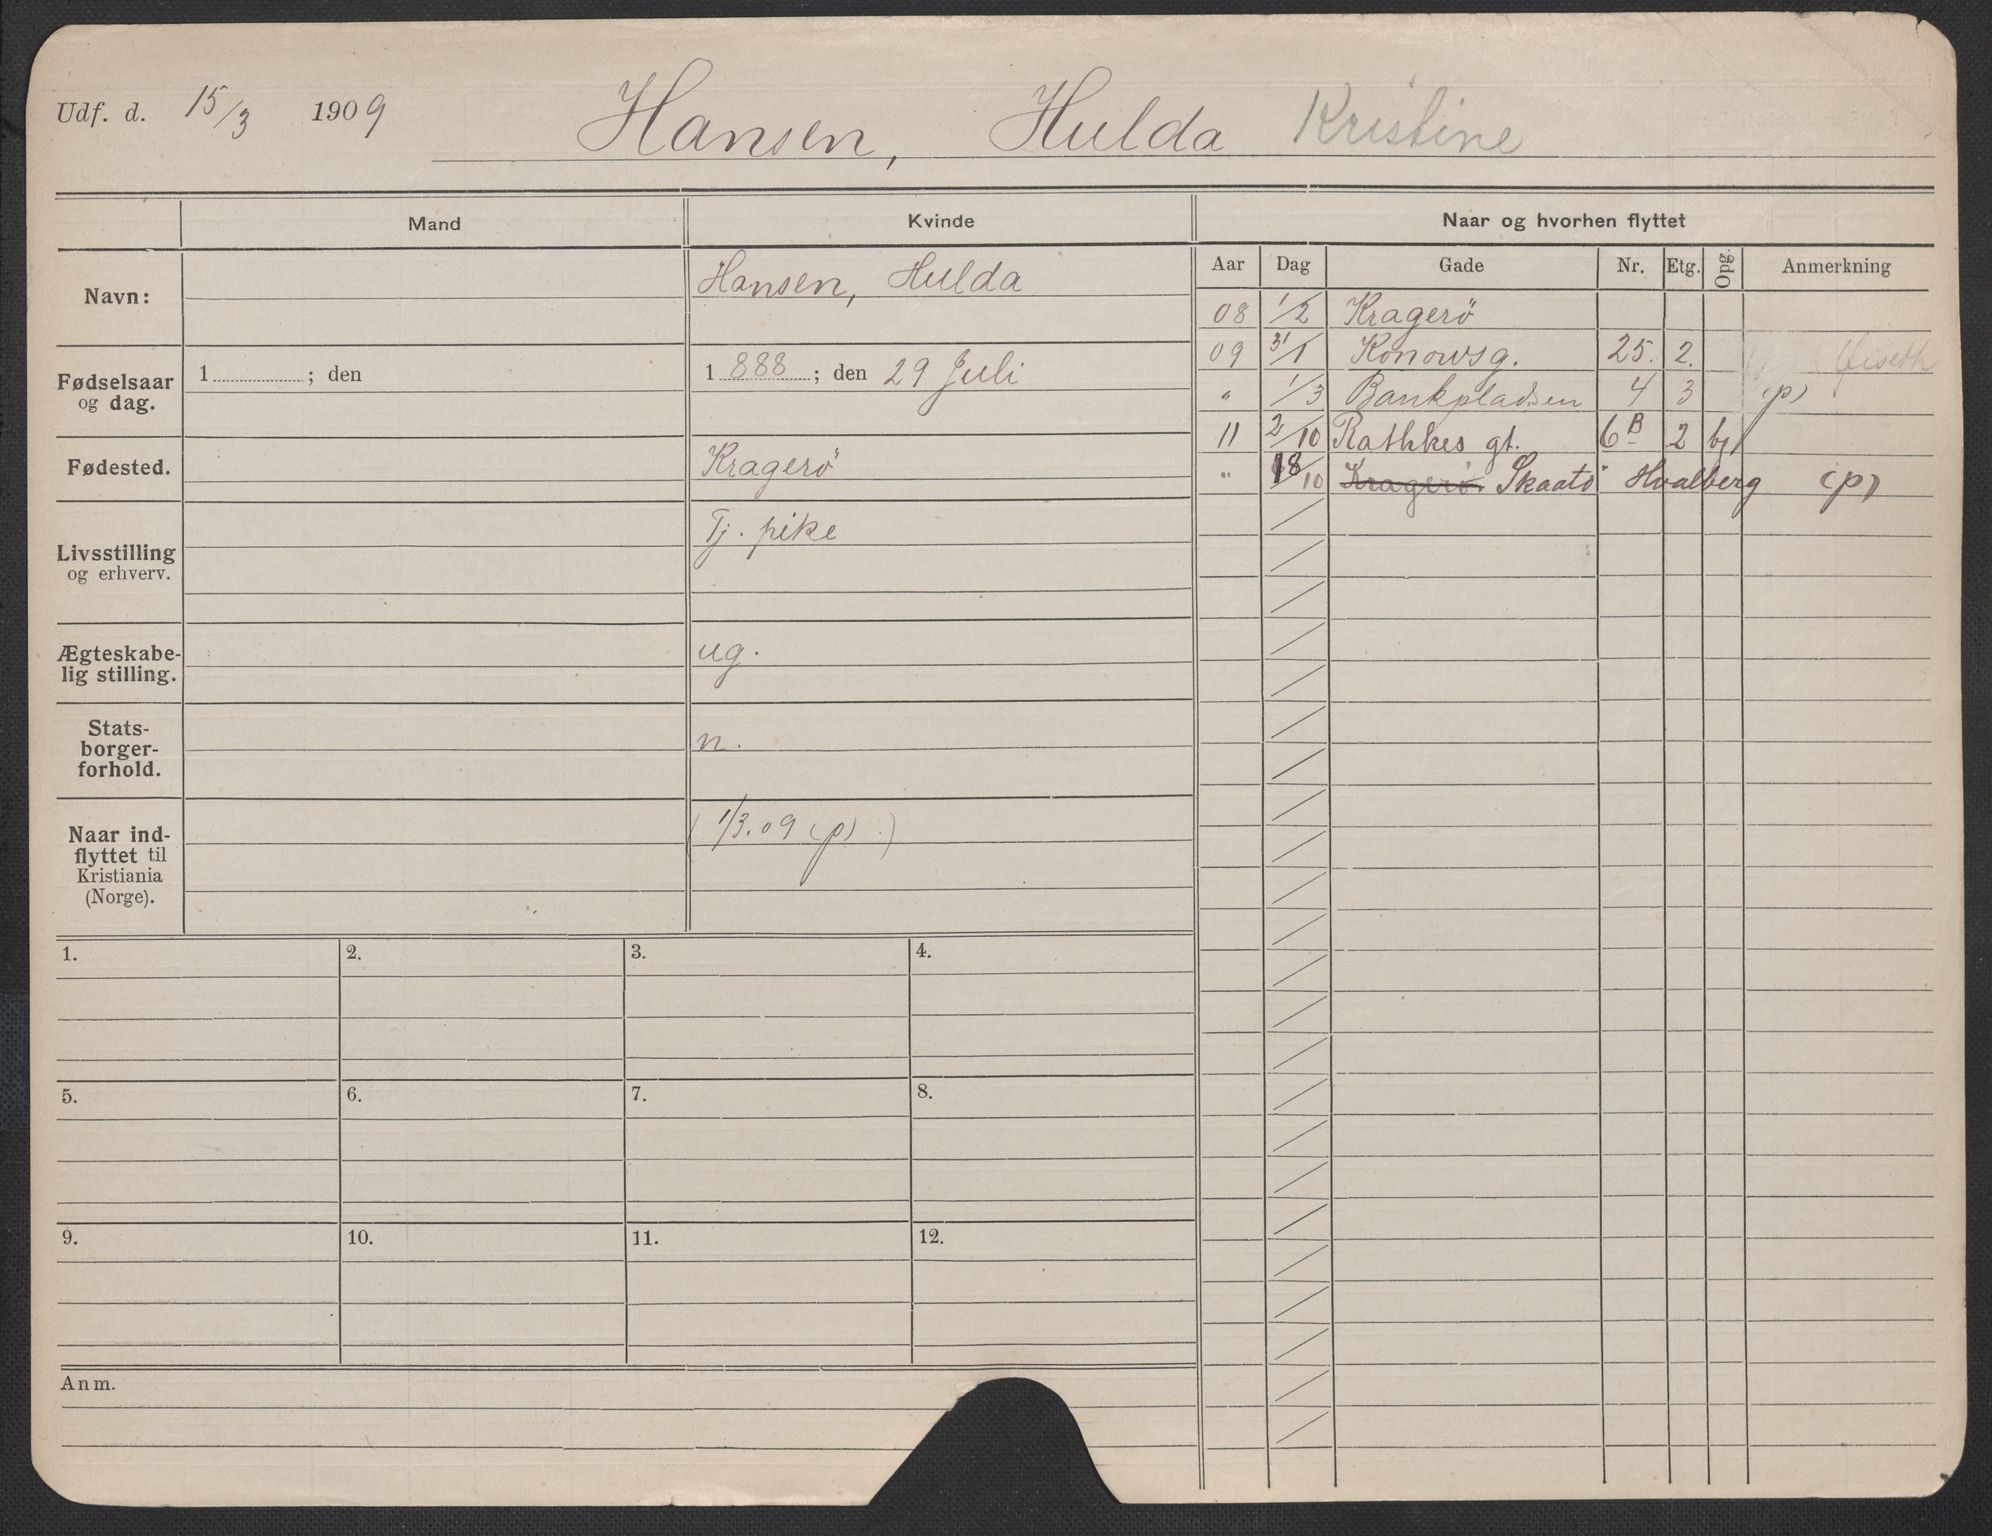 Udf. d. 15/3 1909 Hansen, Hulda Kristine
Mand Kvinde Naar og hvorhen flyttet
Aar Dag Gade Nr. Etg. Opg. Anmerkning
Navn: Hansen, Hulda
Fødselsaar og dag. 1 ; den 1 888 ; den 29 Juli
Fødested. Kragerö
Livsstilling og erhverv. Tj. pike
Ægteskabe-
lig stilling. ug.
Stats-
borger-
forhold. n.
Naar ind-
flyttet til
Kristiania
(Norge). ( 1/3.09 (p) )
08 1/2 Kragerö
09 31/1 Konowsg. 25. 2.
" 1/3 Bankpladsen 4 3 (p)
11 2/10 Rathkes gt. 6B 2 bj
" 18/10 Kragerö. Skaatö Hvalberg (p)
1. 2. 3. 4.
5. 6. 7. 8.
9. 10. 11. 12.
Anm.